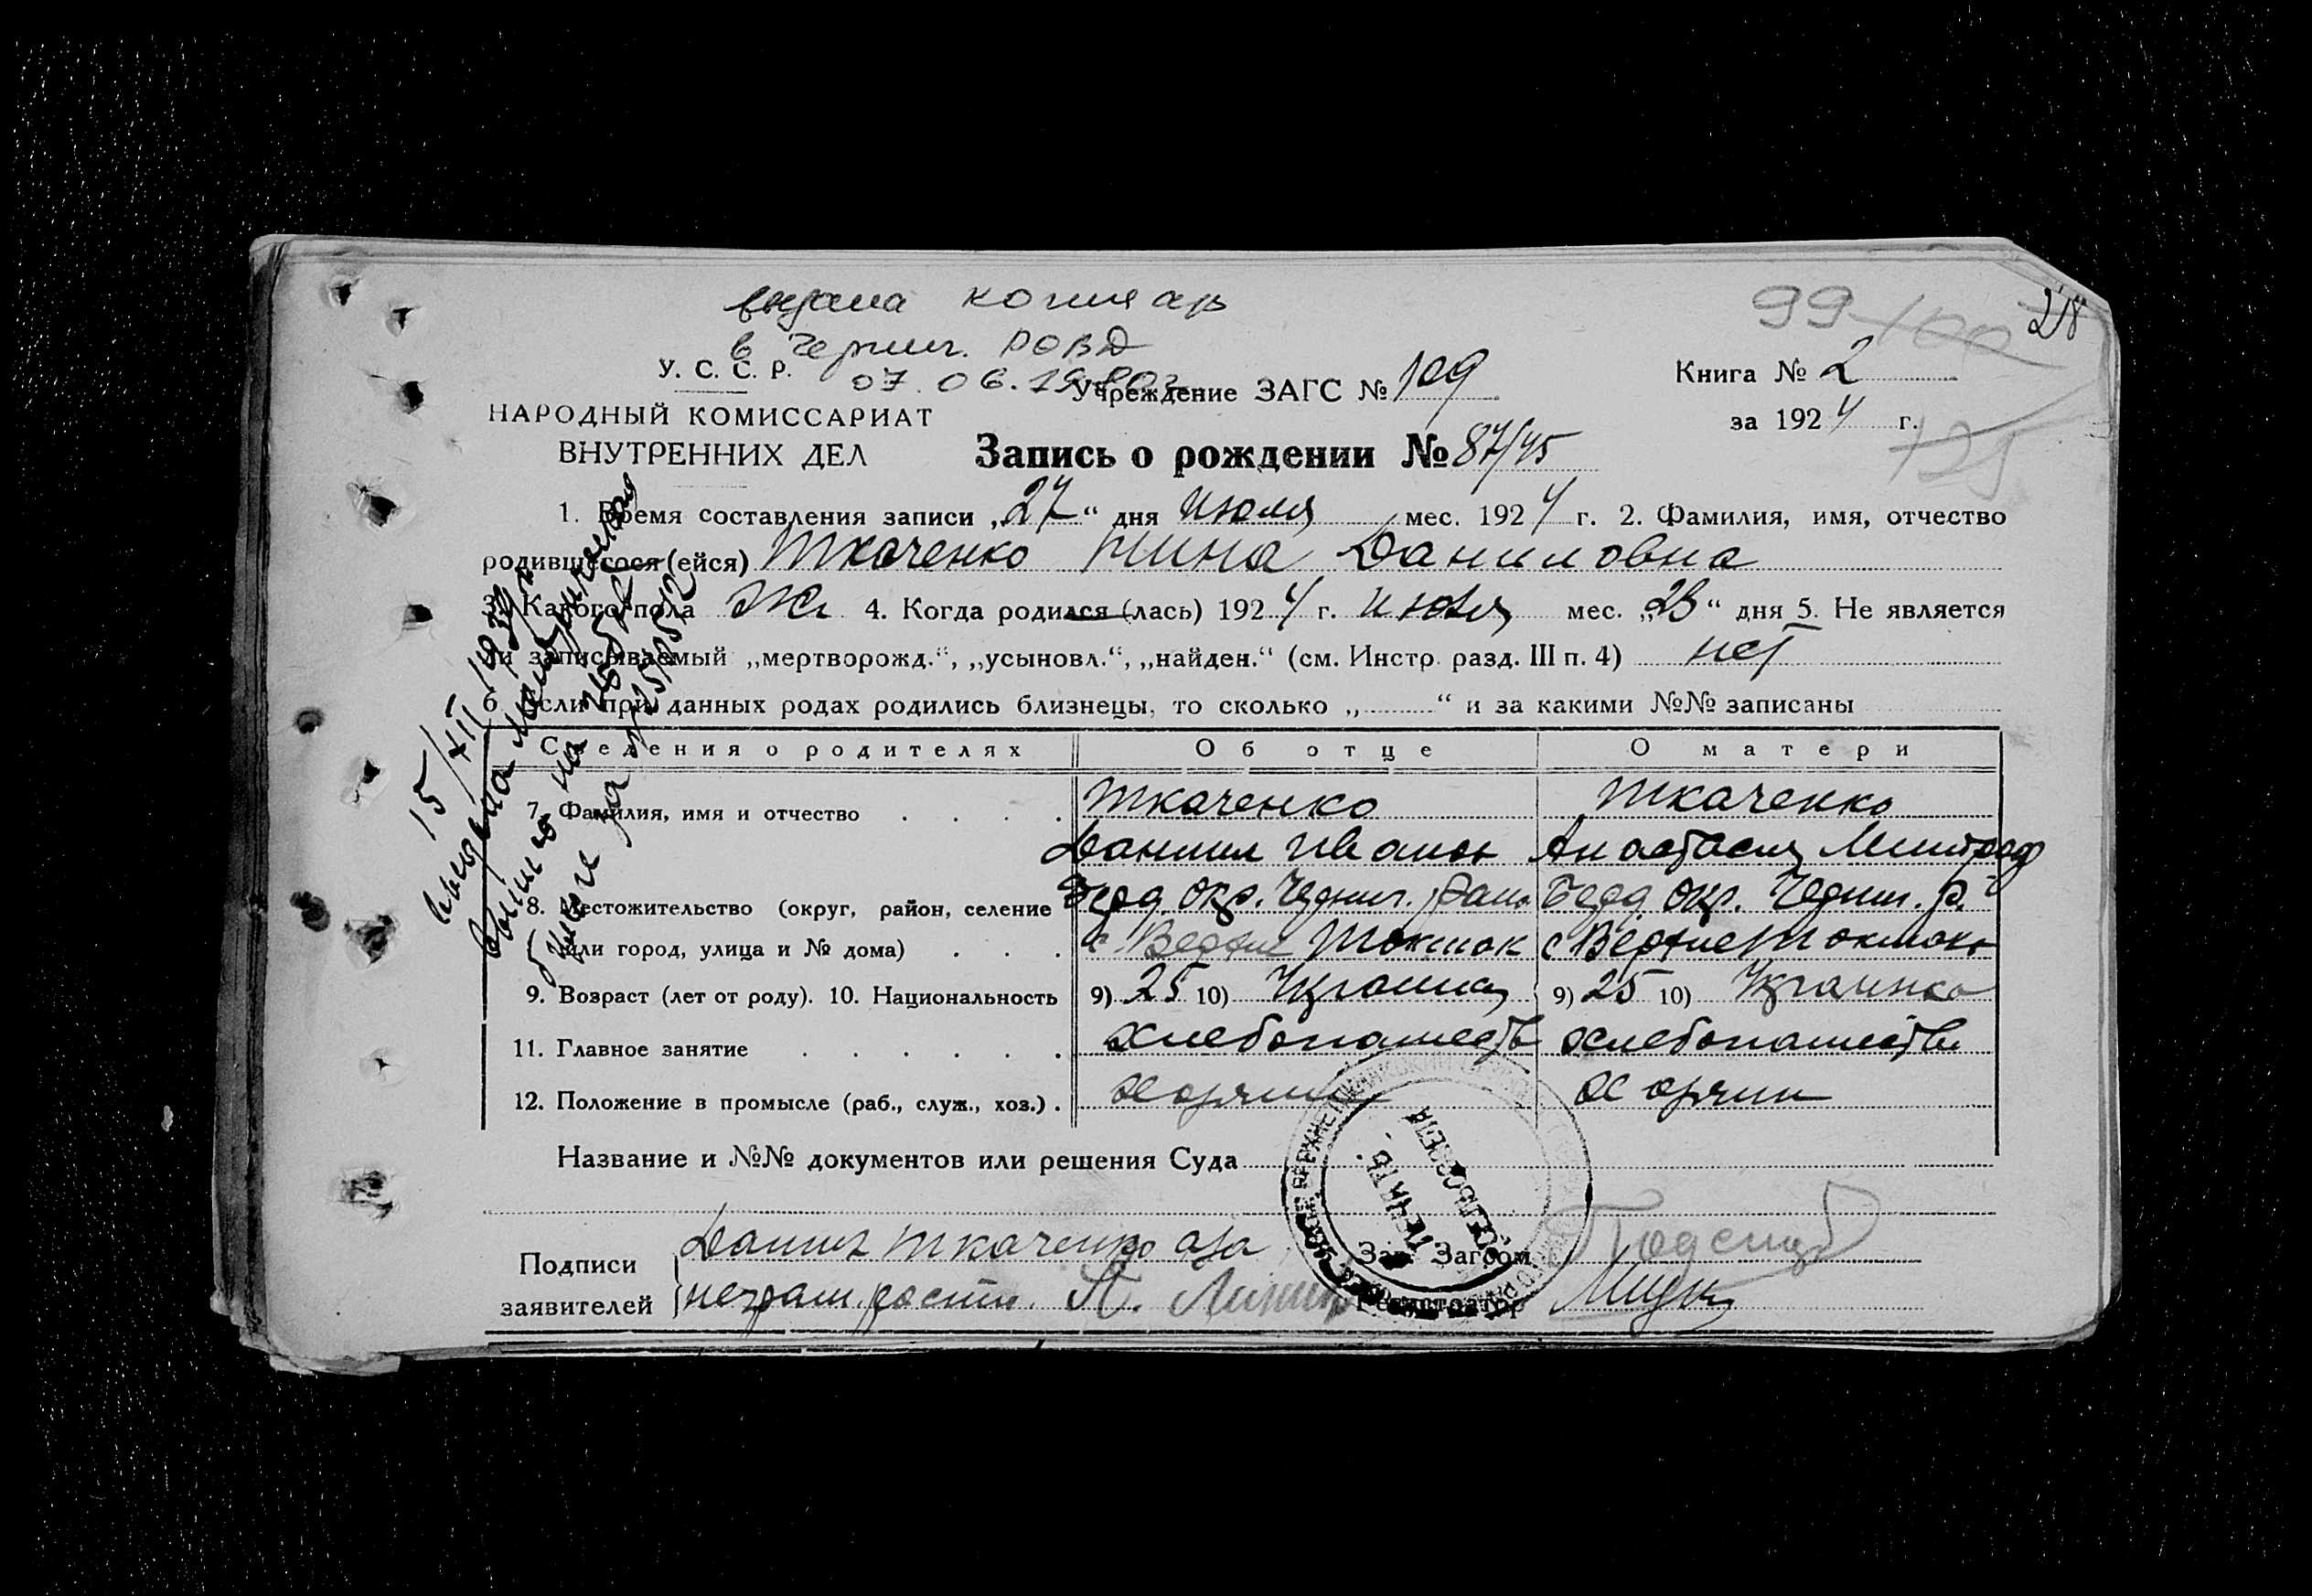 выдана копия а/з
в Черниг. РОВД
07.06.19
99 100 218
У. С. С. Р.
Учреждение ЗАГС № 109
Книга № 2
НАРОДНЫЙ КОМИССАРИАТ
ВНУТРЕННИХ ДЕЛ
за 1924 г.
125
Запись о рождении № 87/45
1. Время составления записи „27“ дня июля мес. 1924 г. 2. Фамилия, имя, отчество
родившегося (ейся) Ткаченко Нина Даниловна
3. Какого пола Ж 4. Когда родился (лась) 1924 г. июля мес. „23“ дня 5. Не является
ли записываемый „мертворожд.“, „усыновл.“, „найден.“ (см. Инстр. разд. III п. 4) нет
6. Если при данных родах родились близнецы, то сколько „ “ и за какими №№ записаны
15/XII 1939 г.
Сведения о родителях Об отце О матери
7. Фамилия, имя и отчество Ткаченко Ткаченко
Даниил Иванов Анастасия
8. Местожительство (округ, район, селение Берд. окр. Черниг. района Берд. окр. Черниг. р.
или город, улица и № дома) с Верхне Токмак с Верхне Токмак
9. Возраст (лет от роду). 10. Национальность 9) 25 10) Украинец 9) 25 10) Украинка
11. Главное занятие хлебопашеств хлебопашеств
12. Положение в промысле (раб., служ., хоз.) .
Название и №№ документов или решения Суда
ПЕЧАТЬ
СЕЛЬСОВЕТА
Подписи
заявителей
Даниил Ткаченко а за
неграм. расп.
Зав. Загсом
Регистратор